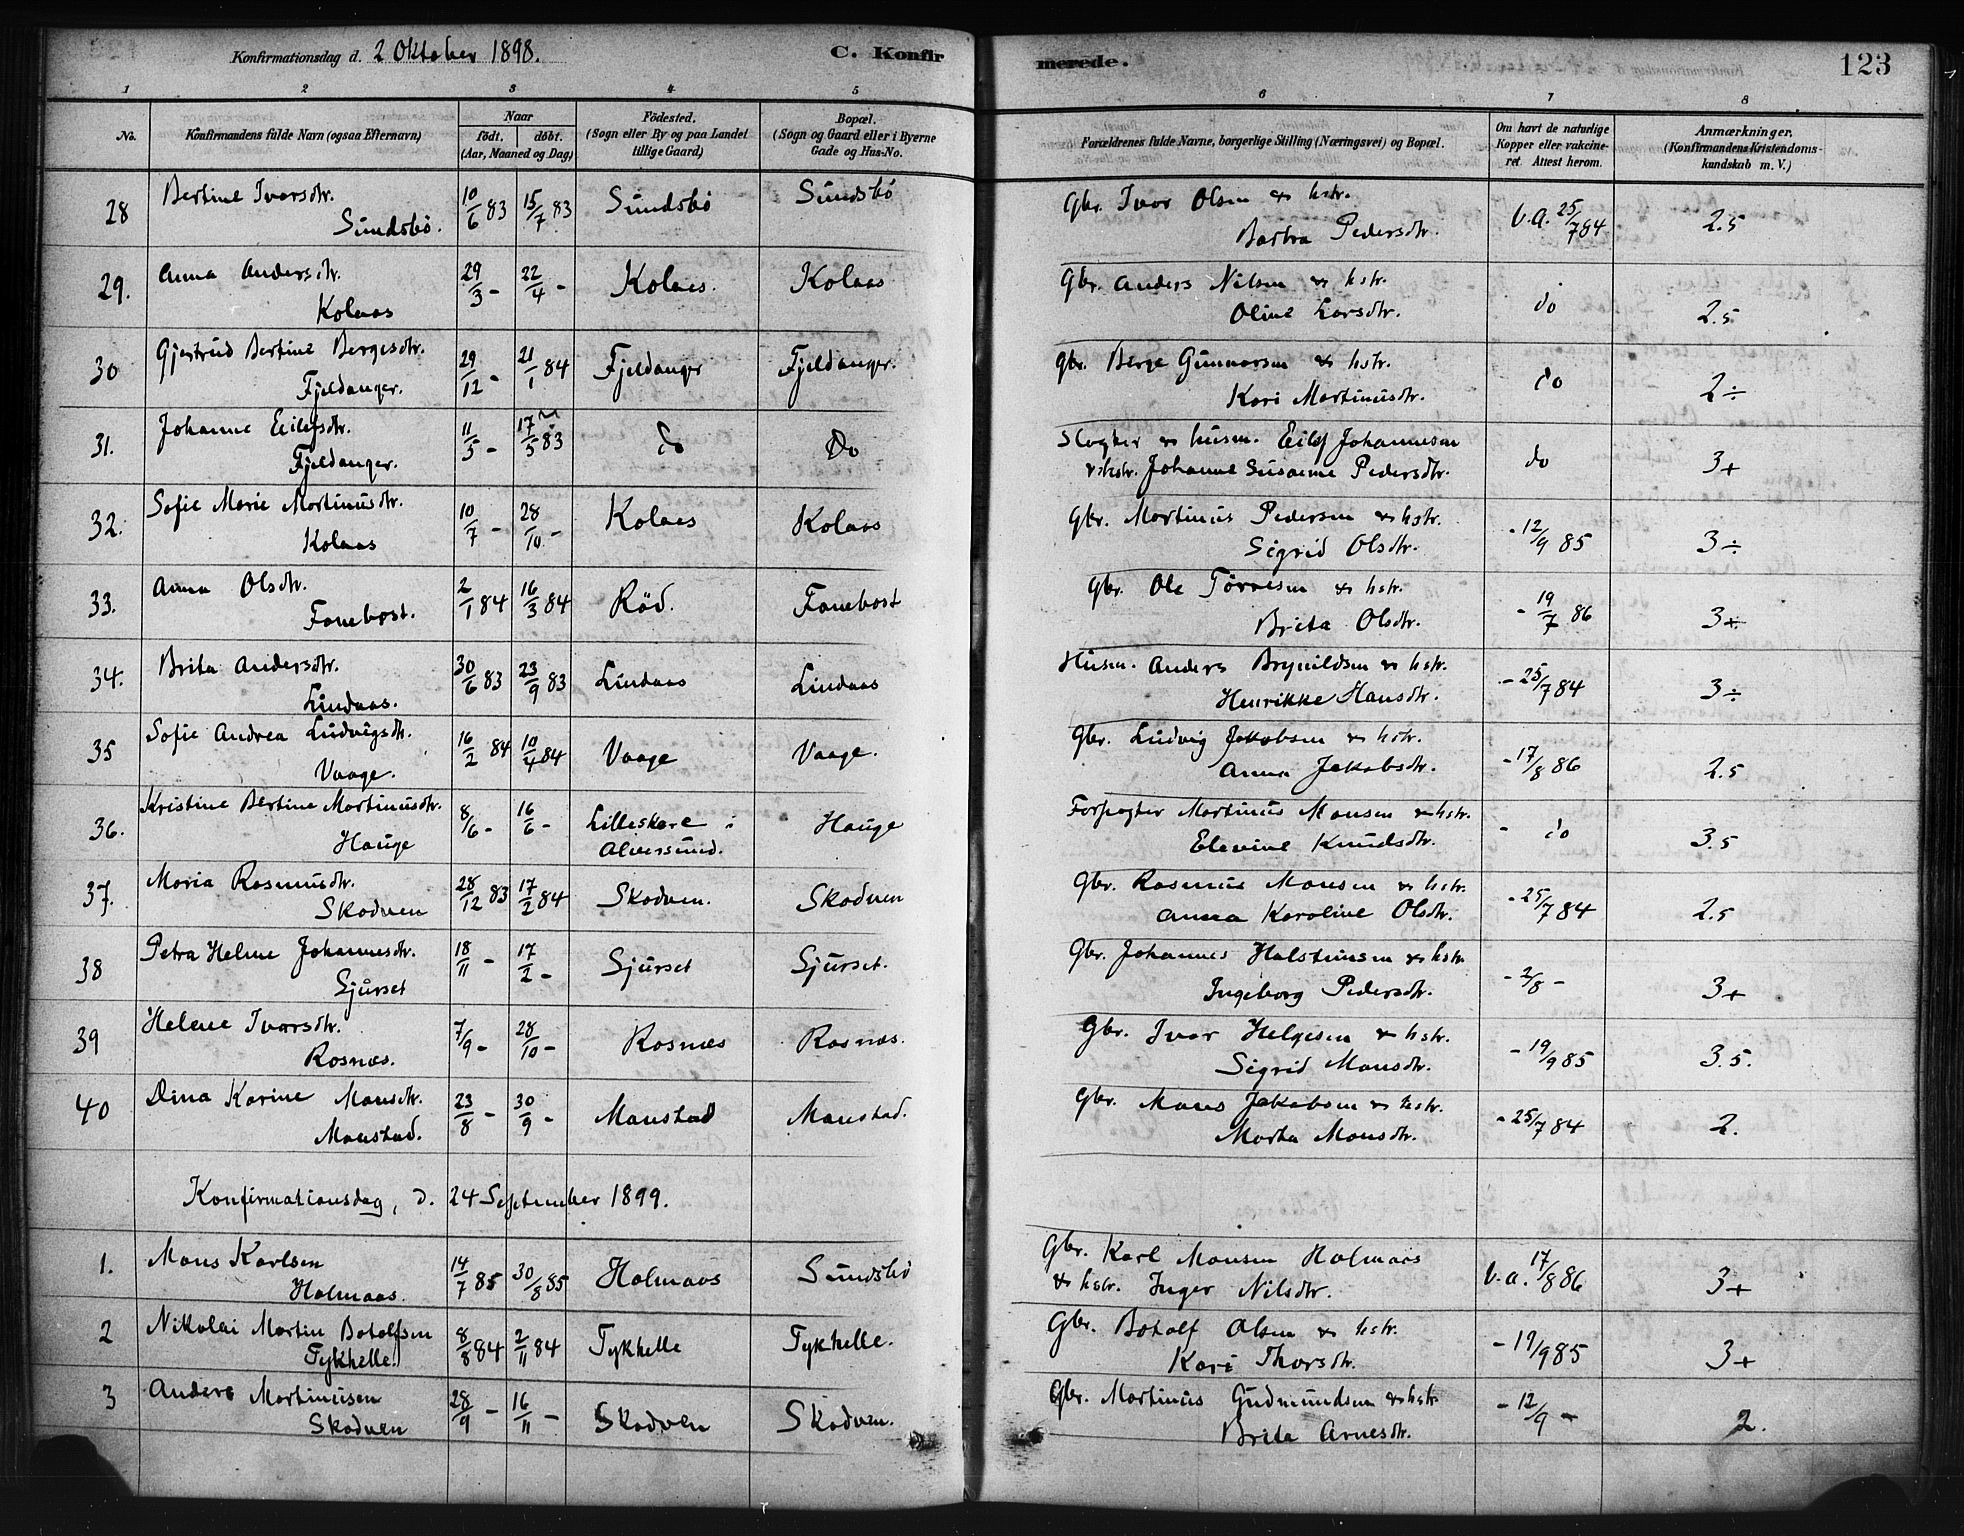 Konfirmationsdag d. 2 Oktober 1898.
C. Konfirmerede.
123
1 2 3 4 5 6 7 8
No.
Konfirmandens fulde Navn (ogsaa Efternavn)
Naar
født. døbt.
(Aar, Maaned og Dag)
Fødested.
(Sogn eller By og paa Landet
tillige Gaard)
Bopæl.
(Sogn og Gaard eller i Byerne
Gade og Hus-No.
Forældrenes fulde Navne, borgerlige Stilling (Næringsvei) og Bopæl.
Om havt de naturlige
Kopper eller vakcine-
ret. Attest herom.
Anmærkninger.
(Konfirmandens Kristendoms-
kundskab m. V.)
28 Bertine Ivarsdtr. 10/6 83 15/7 83 Sundsbö Sundsbö Gbr. Ivar Olsen & hstr. v.a. 25/7 84 2.5
Sundsbö. Barbra Pedersdtr.
29. Anna Andersdtr. 29/3 - 22/4 - Kolaas. Kolaas Gbr. Anders Nilsen & hstr. do 2.5
Kolaas Oline Larsdtr.
30 Gjertrud Bertine Bergesdtr. 29/12 - 21/1 84 Fjeldanger Fjeldanger. Gbr. Berge Gunnarsen & hstr. do 2÷
Fjeldanger. Kari Martinusdtr.
31. Johanne Eilefsdtr. 11/5 - 17/5 83 do Do Husm. Eilef Johannesen do 3+
Fjeldanger. & hstr. Johanne Susanne Pedersdtr.
32. Sofie Marie Martinusdtr. 10/7 - 28/10 - Kolaas Kolaas Gbr. Martinus Pedersen & hstr. - 12/9 85 3÷
Kolaas Sigrid Olsdtr.
33. Anna Olsdtr. 2/1 84 16/3 84 Röd. Fonebost Gbr. Ole Törresen & hstr. - 19/7 86 3+
Fonebost. Brita Olsdtr.
34. Brita Andersdtr. 30/6 83 23/9 83 Lindaas Lindaas Husm. Anders Brynildsen & hstr. - 25/7 84 3÷
Lindaas. Henrikke Hansdtr.
35 Sofie Andrea Ludvigsdtr. 16/2 84 10/4 84 Vaage Vaage. Gbr. Ludvig Jakobsen & hstr. - 17/8 86 2.5
Vaage. Anna Jakobsdtr.
36. Kristine Bertine Martinusdtr. 8/6 - 16/6 - Lilleskare i Hauge Forpagter Martinus Monsen & hstr. - do 3.5
Hauge Alversund. Elevine Knudsdtr.
37. Maria Rasmusdtr. 28/12 83 17/2 84 Skodven. Skodven Gbr. Rasmus Monsen & hstr. - 25/7 84 2.5
Skodven Anna Karoline Olsdtr.
38 Petra Helene Johannesdtr. 18/11 - 17/2 - Sjurset Sjurset. Gbr. Johannes Halstensen & hstr. - 2/8 - 3+
Sjurset Ingeborg Pedersdtr.
39 Helene Ivarsdtr. 7/9 - 28/10 - Rosnæs Rosnæs. Gbr. Ivar Helgesen & hstr. - 19/9 85 3.5.
Rosnæs. Sigrid Monsdtr.
40 Dina Karine Monsdtr. 23/8 - 30/9 - Monstad Monstad. Gbr. Mons Jakobsen & hstr. - 25/7 84 2.
Monstad. Marta Monsdtr.
Konfirmationsdag, d. 24 September 1899.
1. Mons Karlsen 14/7 85 30/8 85 Holmaas Sundsbö Gbr. Karl Monsen Holmaas v.a. 17/8 86 3+
Holmaas. & hstr. Inger Nilsdtr.
2 Nikolai Martin Botolfsen 8/8 84 2/11 84 Tykhelle Tykhelle. Gbr. Botolf Olsen & hstr. - 19/9 85 3+
Tykhelle. Kari Thorsdtr.
3 Anders Martinusen 28/9 - 16/11 - Skodven Skodven. Gbr. Martinus Gudmundsen & hstr. - 12/9 - 2.
Skodven Brita Arnesdtr.